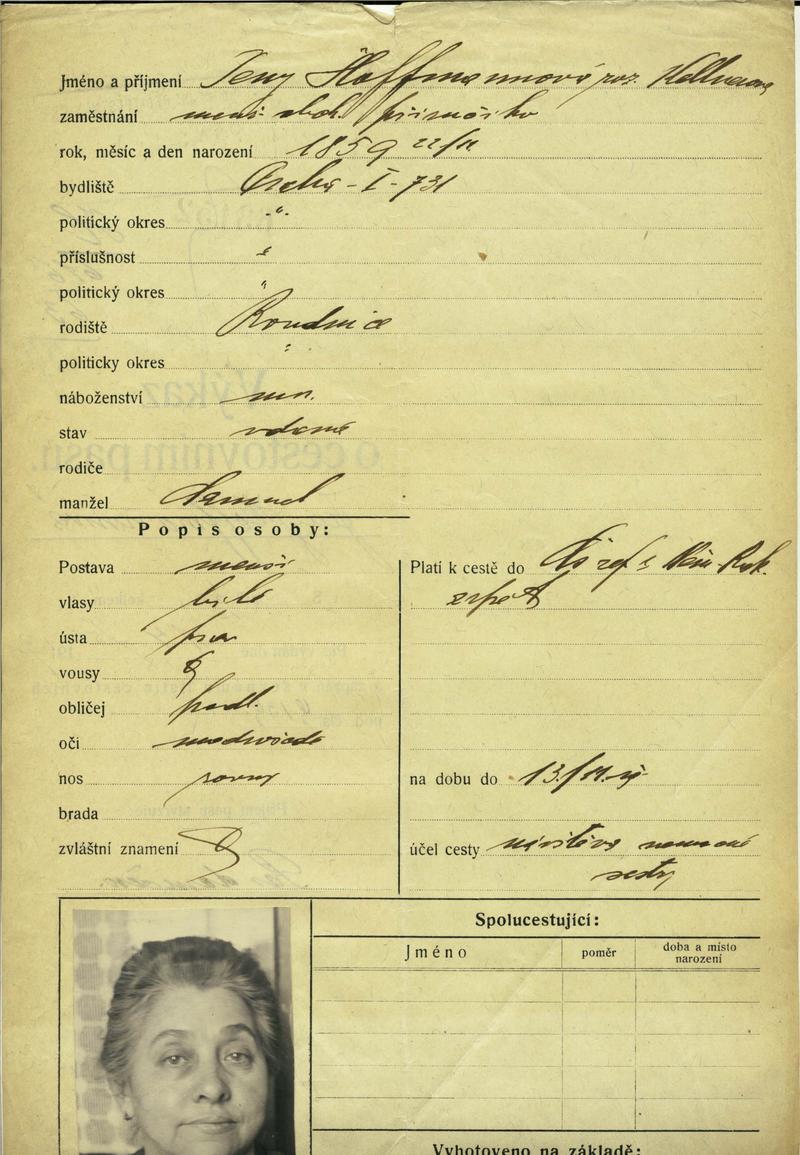 Jméno a příjmení Jeny Hoffmannová roz. Kellnerova
zaměstnání obch. příručího
rok, měsíc a den narození 1859 22/11
bydliště Praha - I - 731
politický okres -"-
příslušnost "
politický okres "
rodiště Roudnice
politicky okres "
náboženství
stav vdaná
rodiče
manžel Samuel
Popis osoby:
Postava menší
vlasy bílé
ústa prav
vousy
obličej podl.
oči
nos rovný
brada
zvláštní znamení
Platí k cestě do
zpět
na dobu do 13./11.
účel cesty návštěva nemocné
sestry
Spolucestující:
Jméno
poměr
doba a místo
narození
Vyhotoveno na základě: